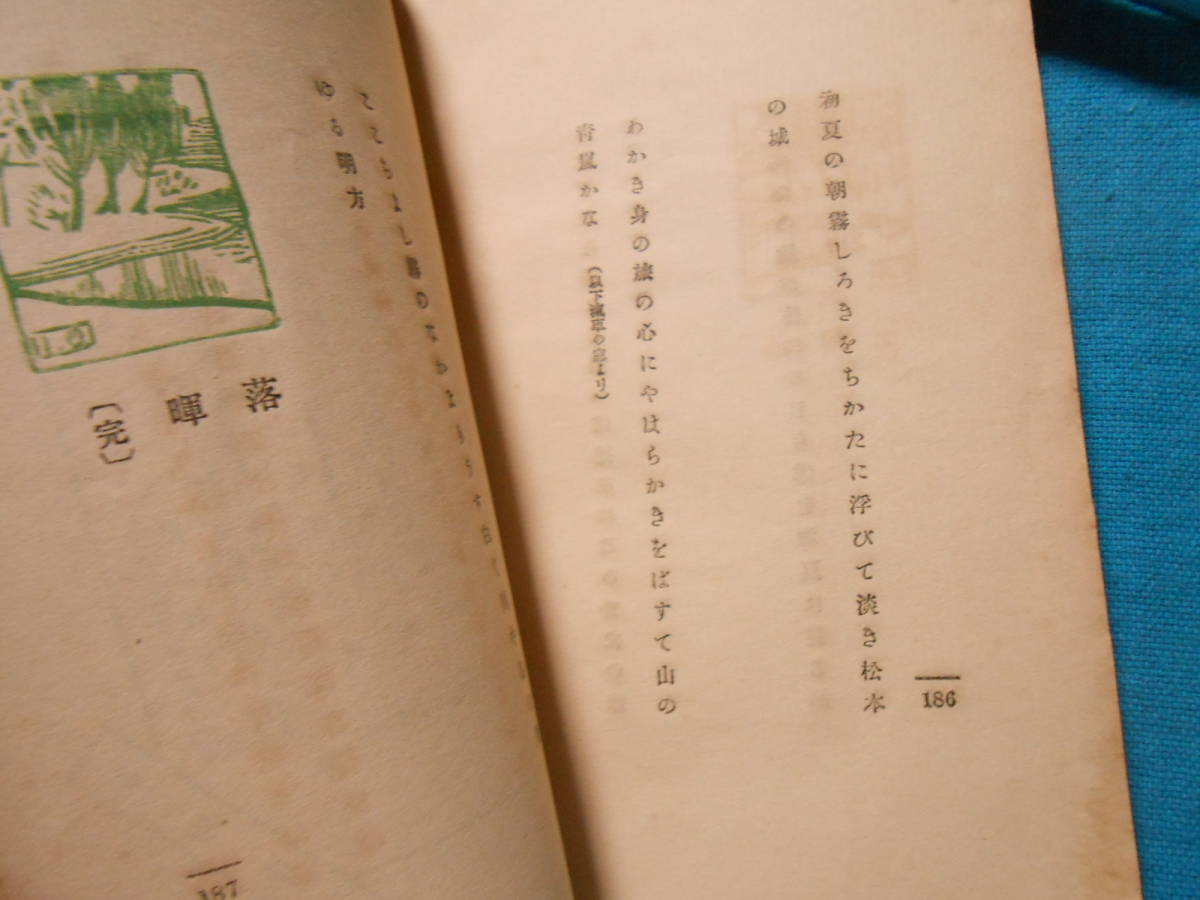 186
初夏の朝霧しろきをちかたに浮びて淡き松本
の城
わかき身の旅の心にやはらかきをばすて山の
青嵐かな(以下滊車の窓より)
こゝちよし霧のなかよりうす
ゆる明方
落暉
〔完〕
187